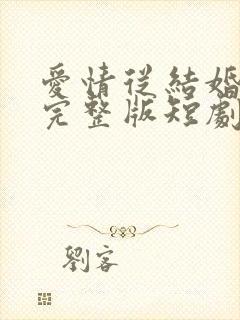 愛情從結婚
完整版短劇
劉客